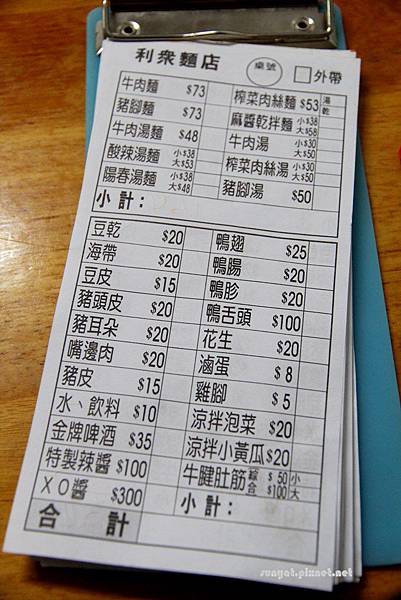 利衆麵店 桌號 外帶
牛肉麵 $73
豬腳麵 $73
牛肉湯麵 $48
酸辣湯麵 小$38 大$53
陽春湯麵 小$38 大$48
小計：
榨菜肉絲麵 $53 湯 乾
麻醬乾拌麵 小$38 大$58
牛肉湯 小$30 大$50
榨菜肉絲湯 小$30 大$50
豬腳湯 $50
豆乾 $20
海帶 $20
豆皮 $15
豬頭皮 $20
豬耳朵 $20
嘴邊肉 $20
豬皮 $15
水、飲料 $10
金牌啤酒 $35
特製辣醬 $100
XO醬 $300
合計
鴨翅 $25
鴨腸 $20
鴨胗 $20
鴨舌頭 $100
花生 $20
滷蛋 $8
雞腳 $5
涼拌泡菜 $20
涼拌小黃瓜 $20
牛腱肚筋 綜合 $50 小 $100 大
小計：
sunyat.pixnet.net